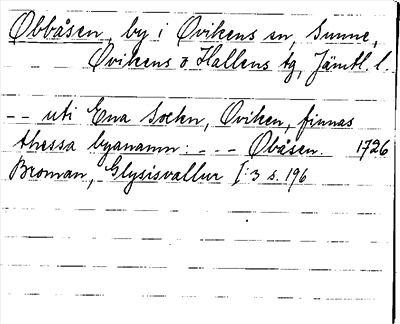 Øbbåsen, by i Ovikens sn, Sunne,
Ovikens o Hallens tg, Jämtl. l.
-- uti Ena Sockn, Oviken, finnas
thessa byanamn: --- Øbåsen. 1726
Broman, Glysisvallur I:3 s. 196